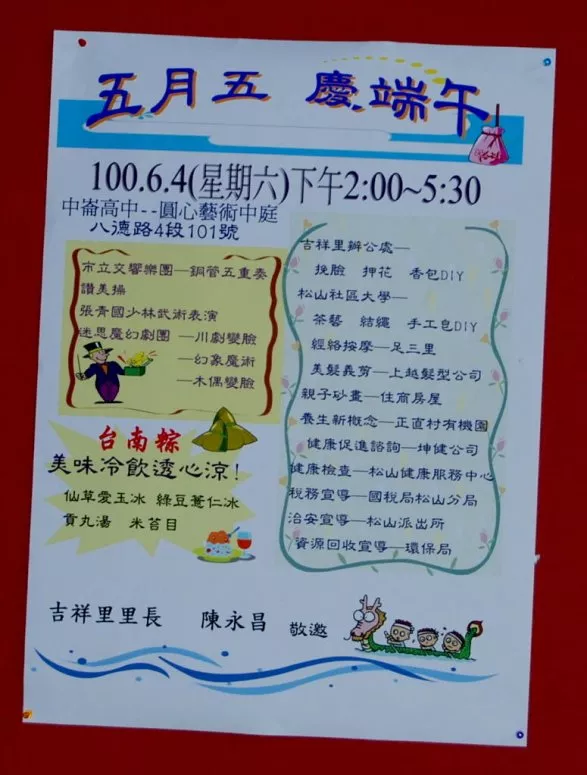 五月五 慶端午
100.6.4(星期六)下午2:00~5:30
中崙高中--圓心藝術中庭
八德路4段101號
市立交響樂團—銅管五重奏
讚美操
張青國少林武術表演
迷思魔幻劇團 —川劇變臉
—幻象魔術
—木偶變臉
台南粽
美味冷飲透心涼!
仙草愛玉冰 綠豆薏仁冰
貢丸湯 米苔目
吉祥里辦公處—
挽臉 押花 香包DIY
松山社區大學—
茶藝 結繩 手工皂DIY
經絡按摩—足三里
美髮義剪—上越髮型公司
親子砂畫—住商房屋
養生新概念—正直村有機園
健康促進諮詢—坤健公司
健康檢查—松山健康服務中心
稅務宣導—國稅局松山分局
治安宣導—松山派出所
資源回收宣導—環保局
吉祥里里長 陳永昌 敬邀